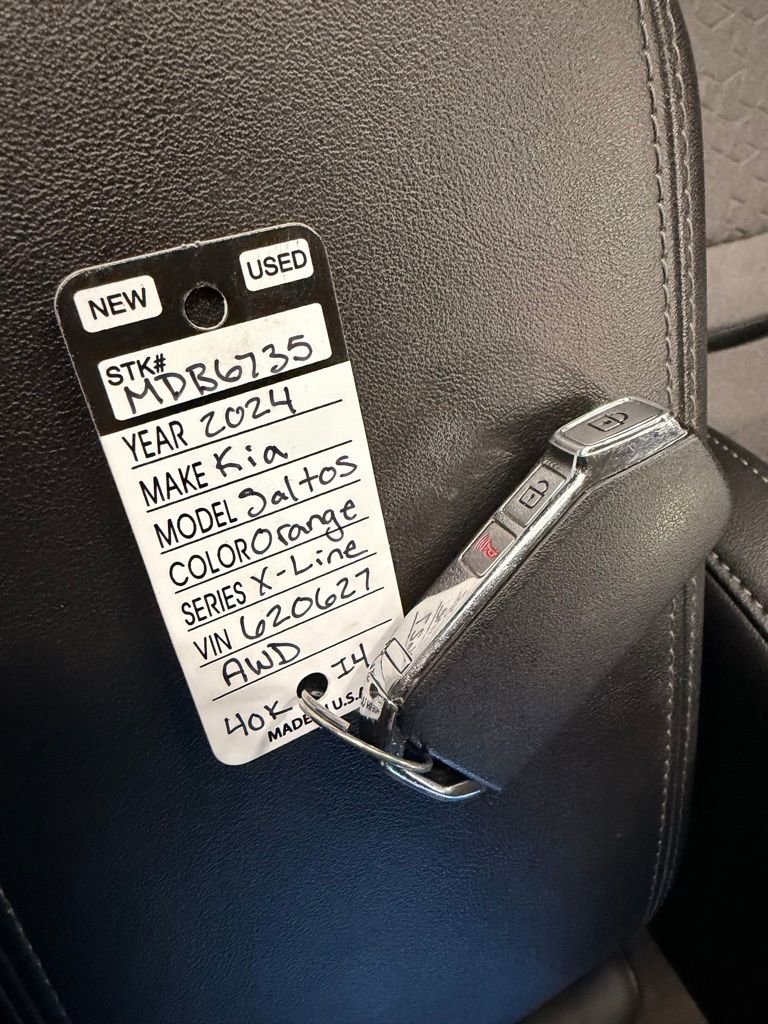 NEW USED
STK# MDB6735
YEAR 2024
MAKE Kia
MODEL Saltos
COLOR Orange
SERIES X-Line
VIN 620627
AWD I4
40K MADE U.S.A